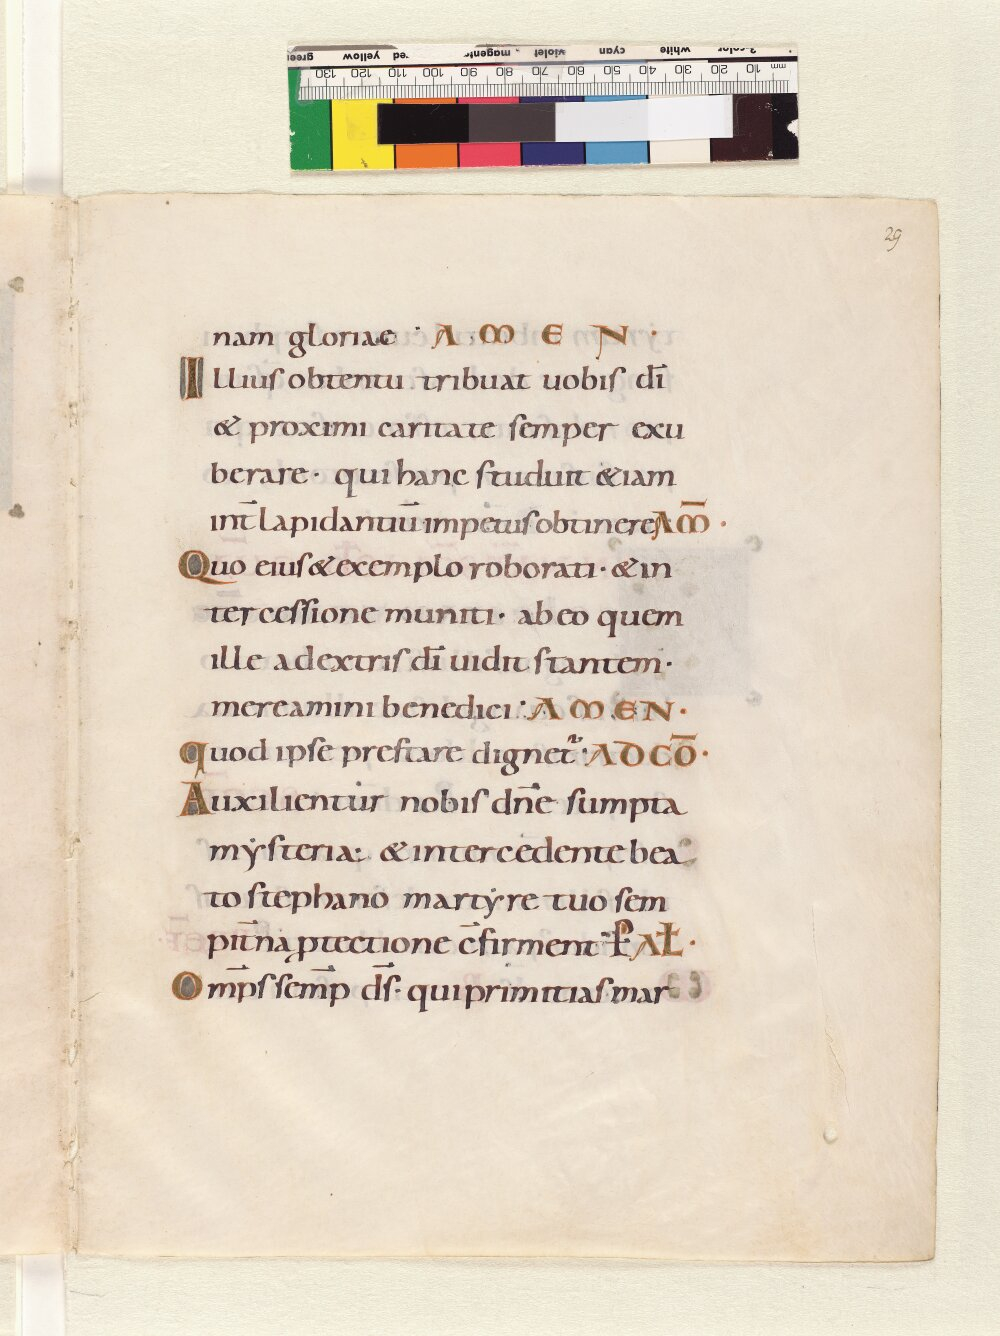 green yellow red magenta violet cyan white 3-color
130 120 110 100 90 80 70 60 50 40 30 20 10 mm
29
nam gloriae · A M E N ·
Illius obtentu tribuat uobis dī
& proximi caritate semper exu
berare · qui hanc studuit &iam
int̄ lapidantiū impetus obtinere AM̄ ·
Quo eius & exemplo roborati · & in
tercessione muniti · ab eo quem
ille a dextris dī uidit stantem ·
mereamini benedici : A M E N ·
quod ipse prestare dignet᷑ · AD CŌ ·
Auxilientur nobis dn̄e sumpta
mẏsteria : & intercedente bea
to stephano martẏre tuo sem
pit̄na ꝓtectione c̄firment · P AL̄ ·
Omp̄s semp̄ ds̄ · qui primitias mar